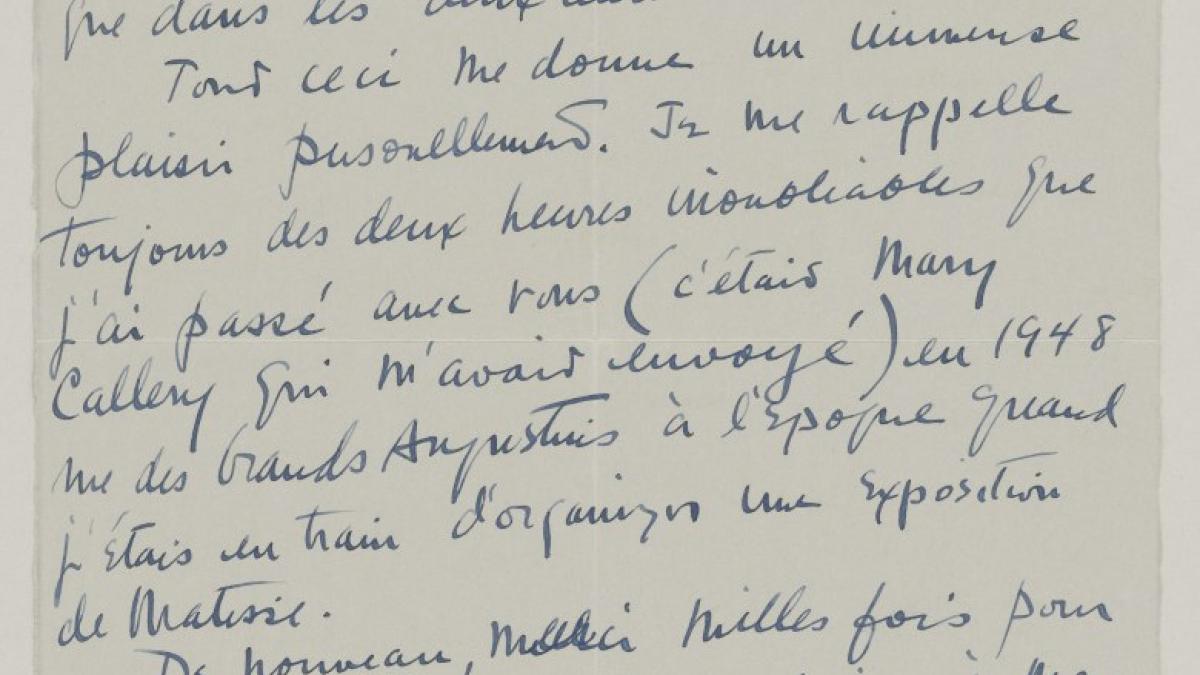 que dans les
Tout ceci me donne un immense
plaisir personellement. Je me rappelle
toujours des deux heures inoubliables que
j'ai passé avec vous (c'était Mary
Callery qui m'avait envoyé) en 1948
rue des Grands Augustins à l'Epoque quand
j'étais en train d'organizer une Exposition
de Matisse.
De nouveau, merci milles fois pour